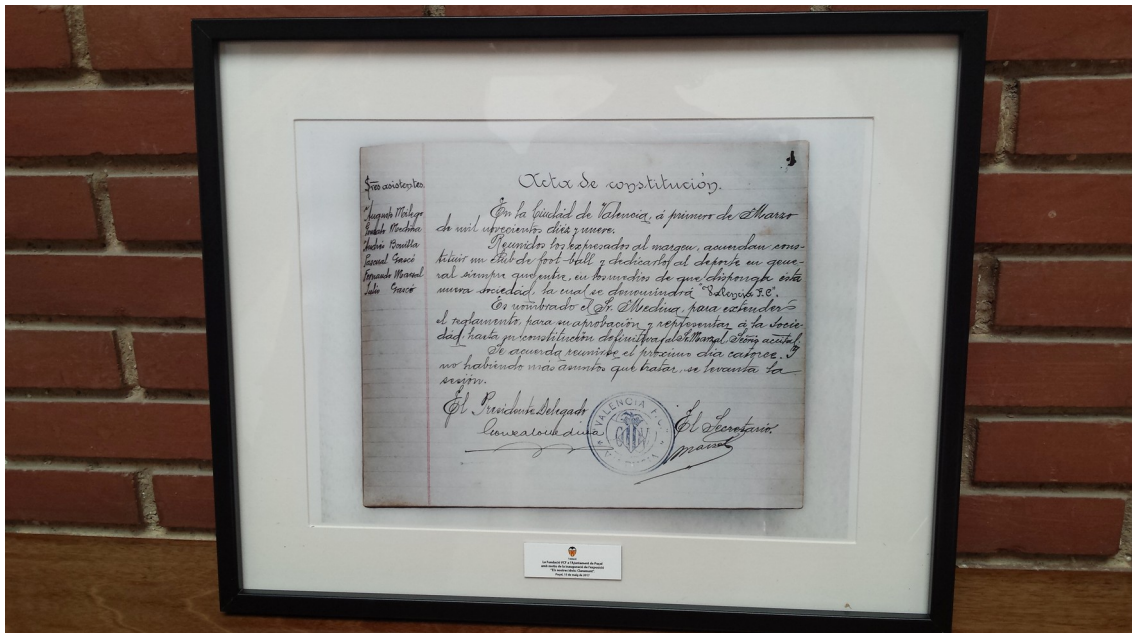 1
Sres asistentes.
Augusto Milego
Gonzalo Medina
Andrés Bonilla
Pascual Gascó
Fernando Marzal
Julio Gascó
Acta de constitución.
En la Ciudad de Valencia, á primero de Marzo
de mil novecientos diez y nueve.
Reunidos los expresados al margen, acuerdan cons-
tituir un Club de foot-ball y dedicarlo al deporte en gene-
ral siempre que entre, en los medios de que disponga esta
nueva sociedad, la cual se denominará "Valencia F.C".
Es nombrado el Sr. Medina, para extender
el reglamento, para su aprobación y representar á la socie-
dad, hasta su constitución definitiva, y al Sr. Marzal, Srio actal.
Se acuerda reunirse el próximo día catorce. Y
no habiendo más asuntos que tratar, se levanta la
sesión.
El Presidente Delegado
Gonzalo Medina
VALENCIA F.C.
El Secretario.
Marzal
La Fundació VCF a l'Ajuntament de Puçol
amb motiu de la inauguració de l'exposició
Puçol, 11 de maig de 2017